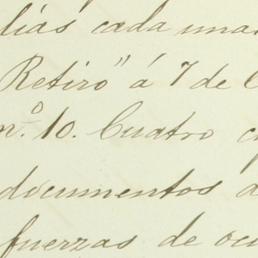 lias cada una
Retiro" á 7 de
nº. 10. Cuatro
documentos
fuerzas de